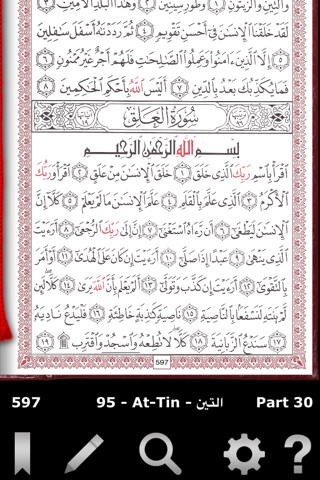 وَٱلتِّينِ وَٱلزَّيْتُونِ ۝١ وَطُورِ سِينِينَ ۝٢ وَهَٰذَا ٱلْبَلَدِ ٱلْأَمِينِ ۝٣
لَقَدْ خَلَقْنَا ٱلْإِنسَٰنَ فِىٓ أَحْسَنِ تَقْوِيمٍ ۝٤ ثُمَّ رَدَدْنَٰهُ أَسْفَلَ سَٰفِلِينَ
۝٥ إِلَّا ٱلَّذِينَ ءَامَنُوا۟ وَعَمِلُوا۟ ٱلصَّٰلِحَٰتِ فَلَهُمْ أَجْرٌ غَيْرُ مَمْنُونٍ ۝٦
فَمَا يُكَذِّبُكَ بَعْدُ بِٱلدِّينِ ۝٧ أَلَيْسَ ٱللَّهُ بِأَحْكَمِ ٱلْحَٰكِمِينَ ۝٨
سُورَةُ ٱلْعَلَقِ
بِسْمِ ٱللَّهِ ٱلرَّحْمَٰنِ ٱلرَّحِيمِ
ٱقْرَأْ بِٱسْمِ رَبِّكَ ٱلَّذِى خَلَقَ ۝١ خَلَقَ ٱلْإِنسَٰنَ مِنْ عَلَقٍ ۝٢ ٱقْرَأْ وَرَبُّكَ
ٱلْأَكْرَمُ ۝٣ ٱلَّذِى عَلَّمَ بِٱلْقَلَمِ ۝٤ عَلَّمَ ٱلْإِنسَٰنَ مَا لَمْ يَعْلَمْ ۝٥ كَلَّآ إِنَّ
ٱلْإِنسَٰنَ لَيَطْغَىٰٓ ۝٦ أَن رَّءَاهُ ٱسْتَغْنَىٰٓ ۝٧ إِنَّ إِلَىٰ رَبِّكَ ٱلرُّجْعَىٰٓ ۝٨ أَرَءَيْتَ
ٱلَّذِى يَنْهَىٰ ۝٩ عَبْدًا إِذَا صَلَّىٰٓ ۝١٠ أَرَءَيْتَ إِن كَانَ عَلَى ٱلْهُدَىٰٓ ۝١١ أَوْ أَمَرَ
بِٱلتَّقْوَىٰٓ ۝١٢ أَرَءَيْتَ إِن كَذَّبَ وَتَوَلَّىٰٓ ۝١٣ أَلَمْ يَعْلَم بِأَنَّ ٱللَّهَ يَرَىٰ ۝١٤ كَلَّا لَئِن
لَّمْ يَنتَهِ لَنَسْفَعًۢا بِٱلنَّاصِيَةِ ۝١٥ نَاصِيَةٍ كَٰذِبَةٍ خَاطِئَةٍ ۝١٦ فَلْيَدْعُ نَادِيَهُۥ
۝١٧ سَنَدْعُ ٱلزَّبَانِيَةَ ۝١٨ كَلَّا لَا تُطِعْهُ وَٱسْجُدْ وَٱقْتَرِب ۩ ۝١٩
597
597 95 - At-Tin - التين Part 30
?